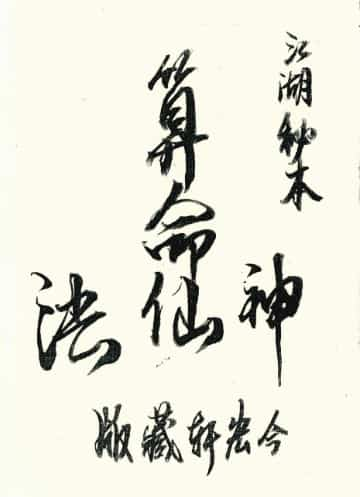 江湖秘本
算命
神仙法
今宏轩藏版